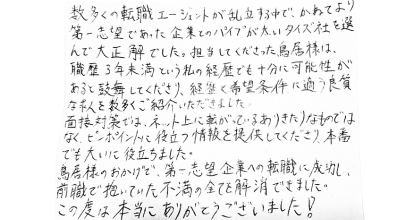 数多くの転職エージェントが乱立する中で、かねてより
第一志望であった企業とのパイプが太いタイズ社を選
んで大正解でした。担当してくださった鳥居様は、
職歴3年未満という私の経歴でも十分に可能性が
あると鼓舞してくださり、経歴と希望条件に適う良質
な求人を数多くご紹介いただきました。
面接対策では、ネット上に転がっているありきたりなものでは
なく、ピンポイントに役立つ情報を提供してくださり、本番
でも大いに役立ちました。
鳥居様のおかげで、第一志望企業への転職に成功し、
前職で抱いていた不満の全てを解消できました。
この度は本当にありがとうございました!